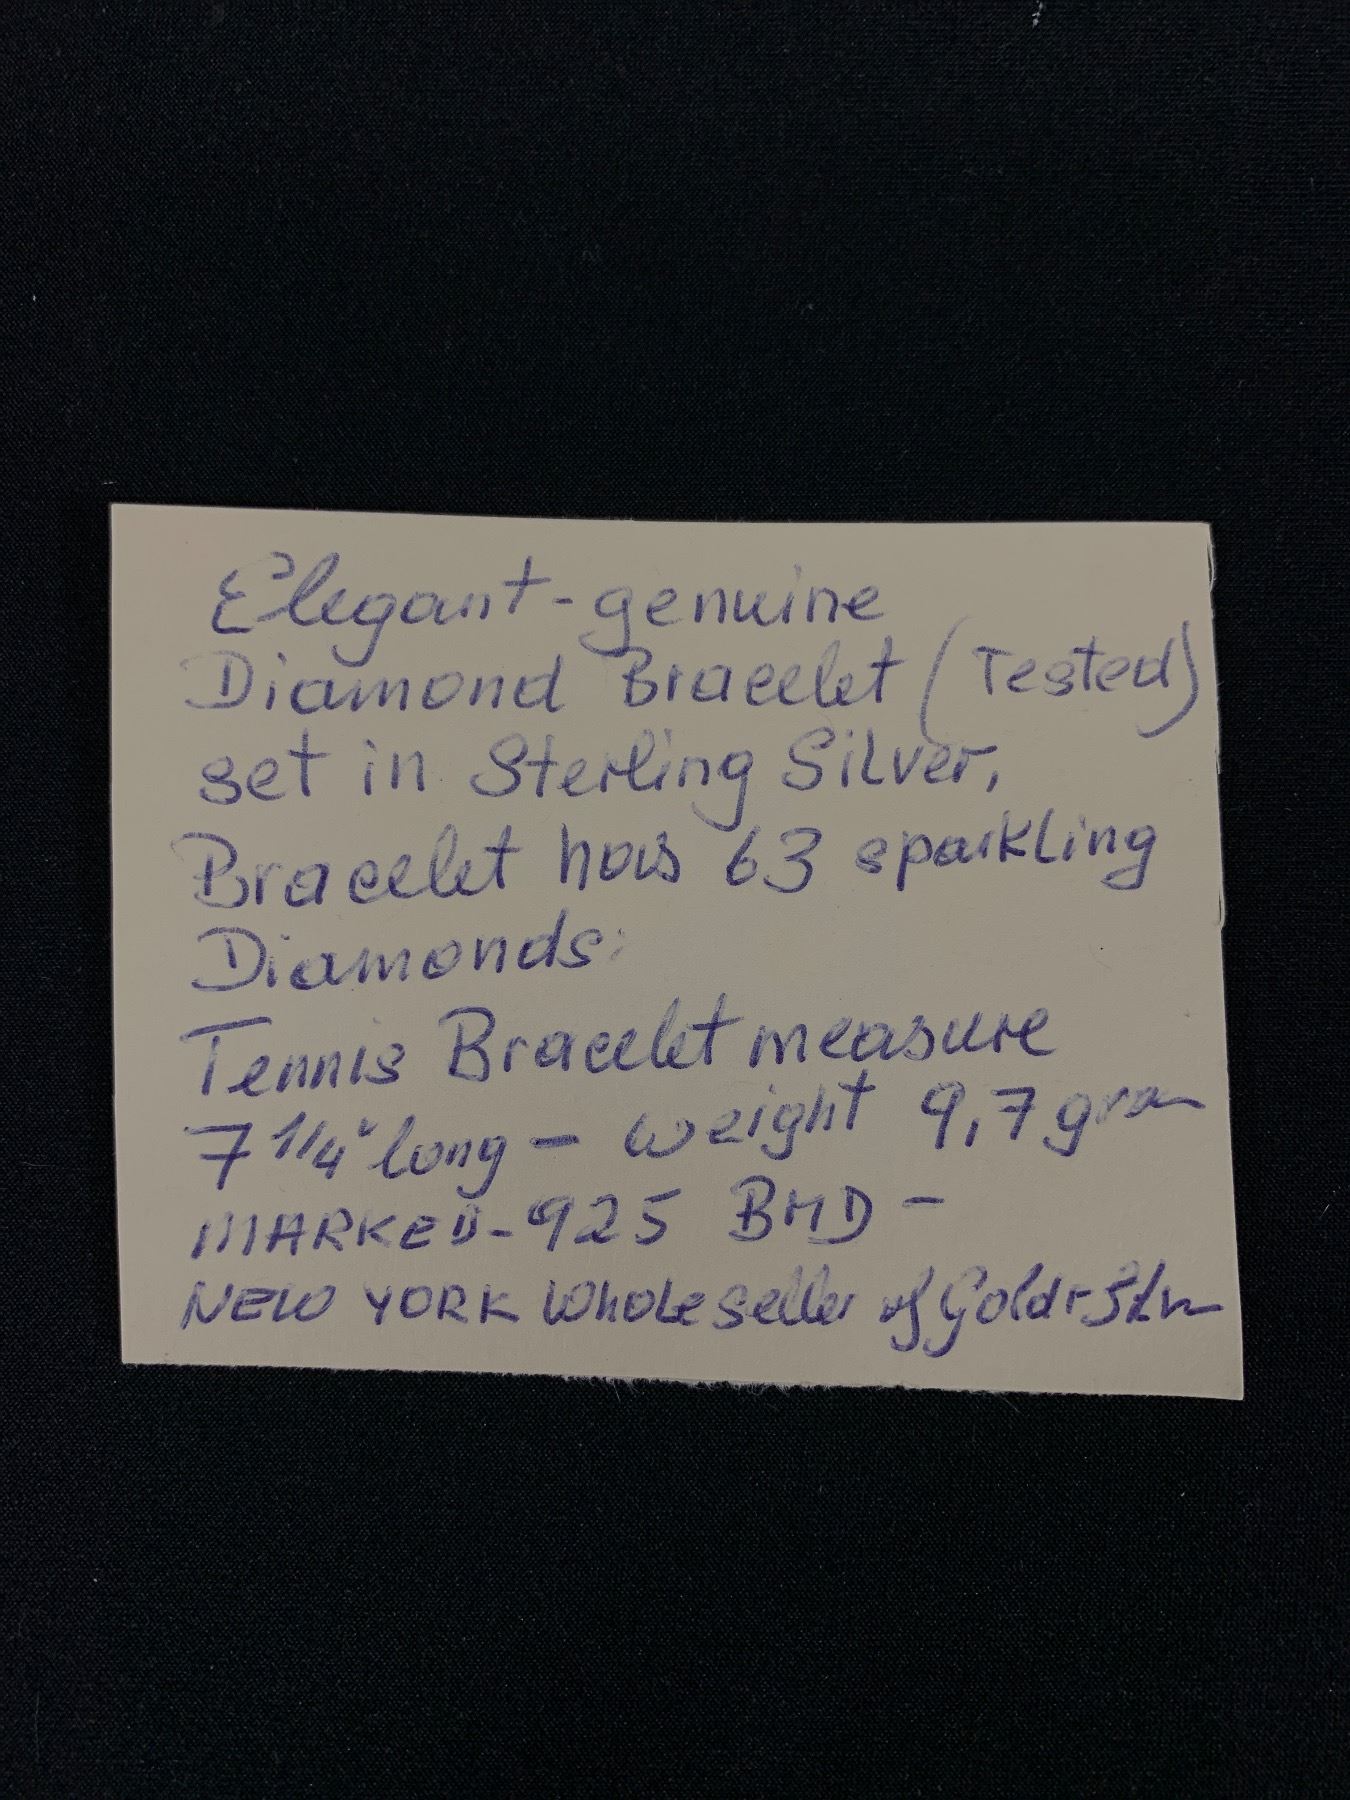 Elegant-genuine
Diamond Bracelet (Tested)
set in Sterling Silver,
Bracelet has 63 sparkling
Diamonds:
Tennis Bracelet measure
7 1/4" long - weight 9,7 gram
MARKED-925 BMD -
NEW YORK Wholeseller of Gold +